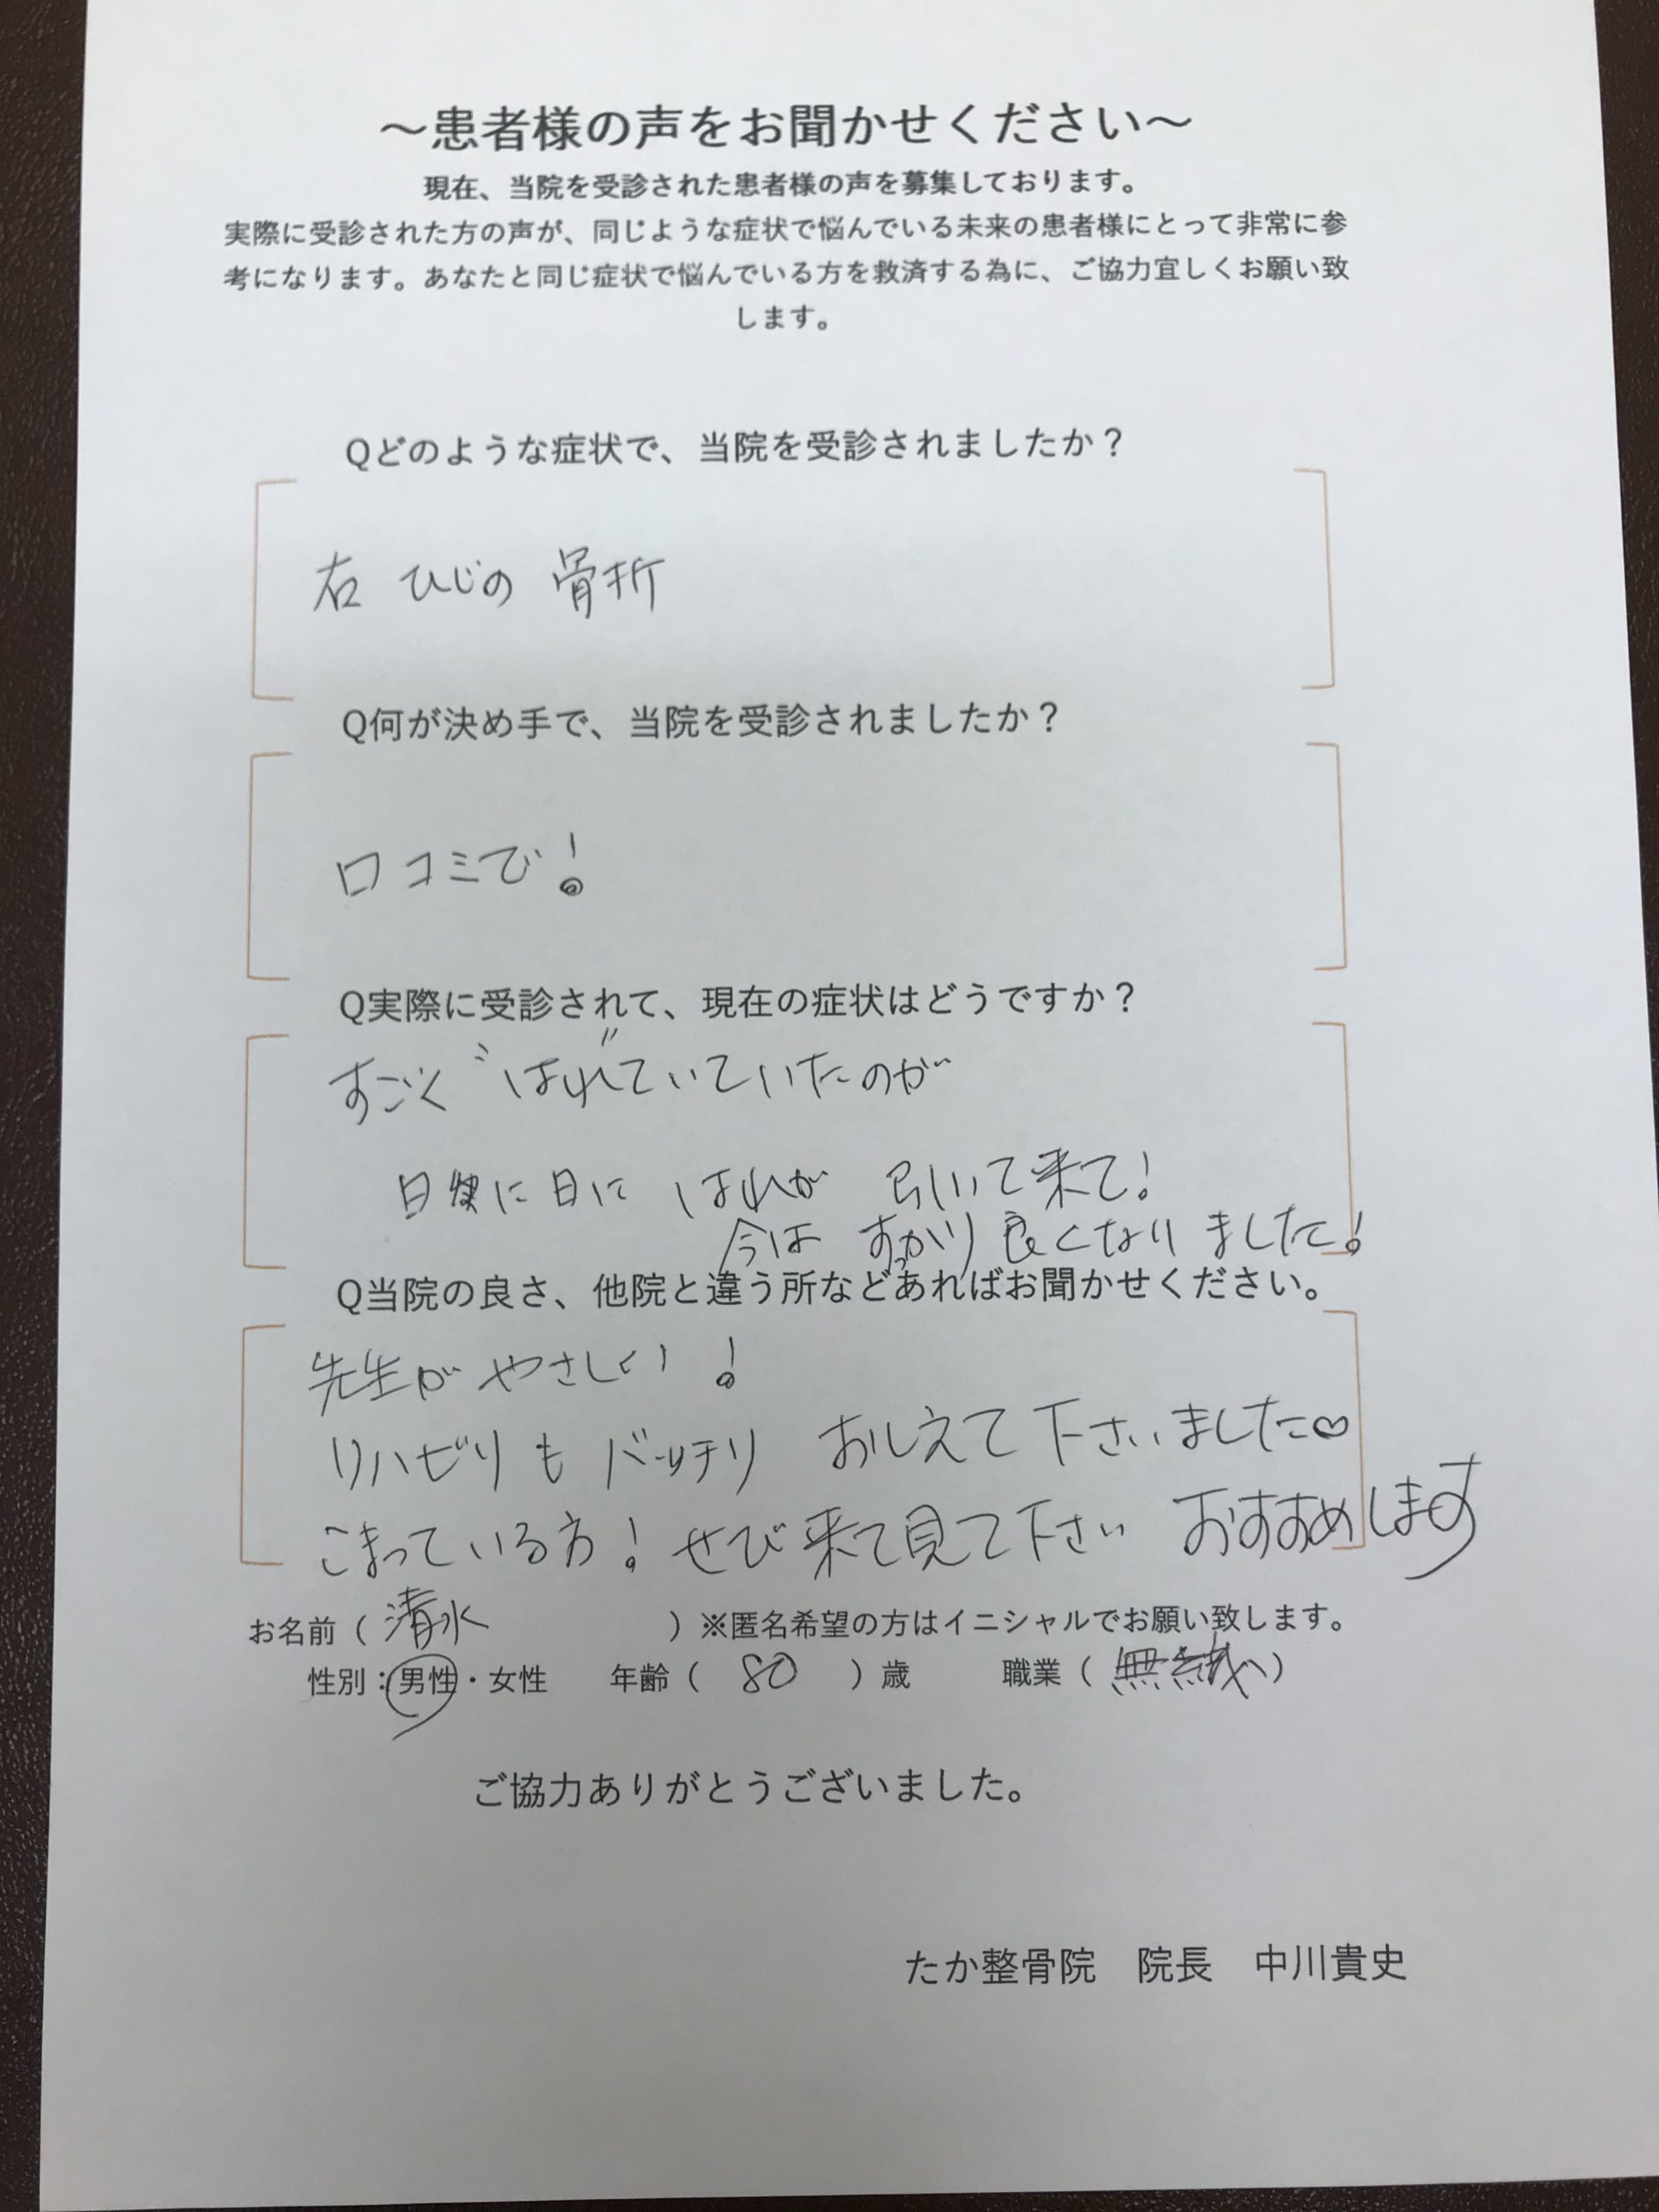 ～患者様の声をお聞かせください～
現在、当院を受診された患者様の声を募集しております。
実際に受診された方の声が、同じような症状で悩んでいる未来の患者様にとって非常に参
考になります。あなたと同じ症状で悩んでいる方を救済する為に、ご協力宜しくお願い致
します。
Qどのような症状で、当院を受診されましたか？
右 ひじの 骨折
Q何が決め手で、当院を受診されましたか？
口コミで！
Q実際に受診されて、現在の症状はどうですか？
すごく〝はれ〞ていていたのが
日に日に はれが 引いて来て！
今は すっかり 良くなりました！
Q当院の良さ、他院と違う所などあればお聞かせください。
先生が やさしい！
リハビリも バッチリ おしえて下さいました♡
こまっている方！ぜひ来て見て下さい おすすめします
お名前（ 清水 ）※匿名希望の方はイニシャルでお願い致します。
性別：男性・女性 年齢（ 80 ）歳 職業（ 無職 ）
ご協力ありがとうございました。
たか整骨院 院長 中川貴史